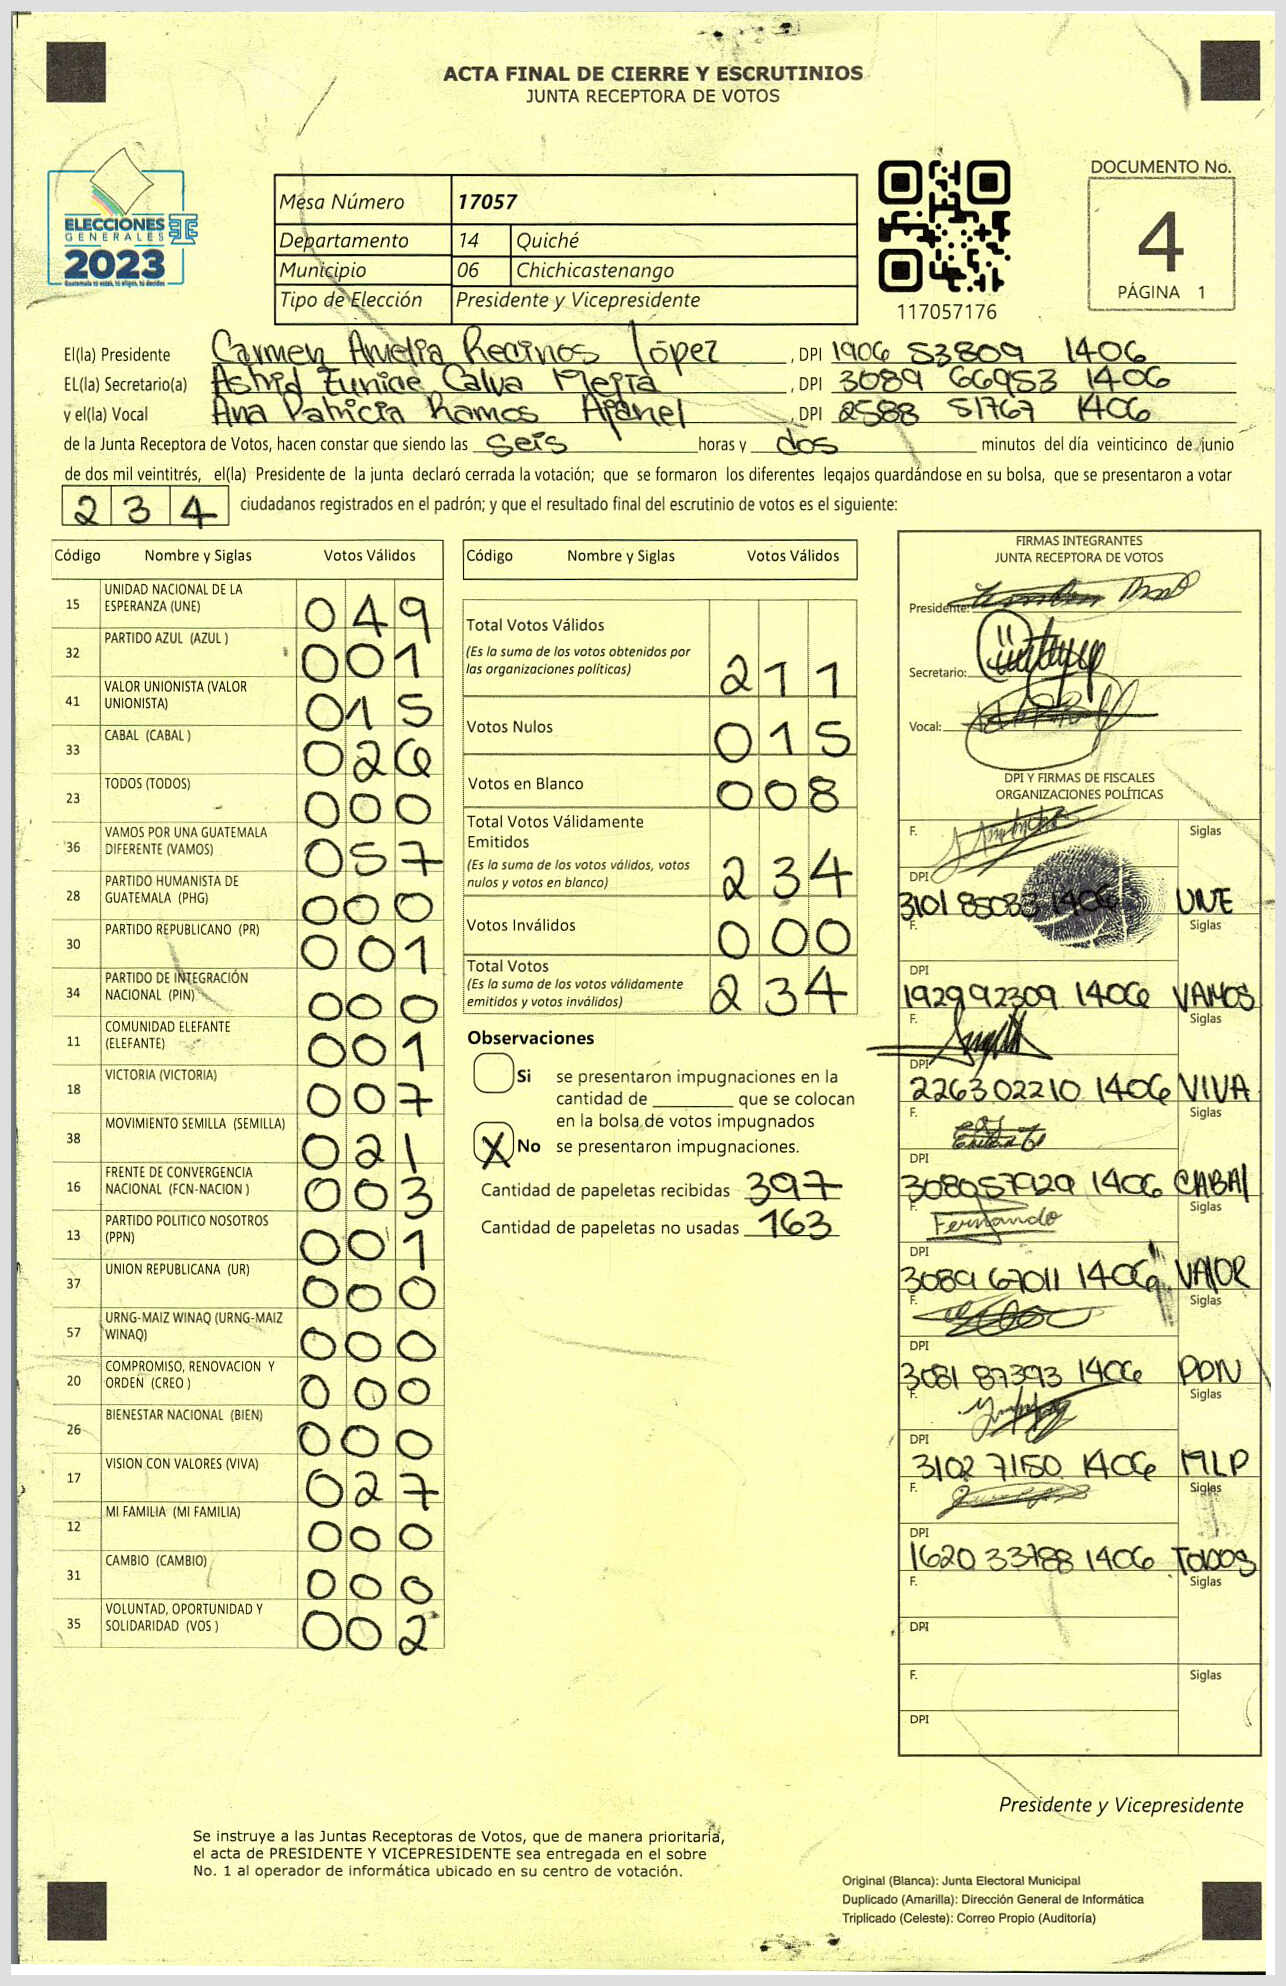 ACTA FINAL DE CIERRE Y ESCRUTINIOS
JUNTA RECEPTORA DE VOTOS
ELECCIONES
GENERALES
2023
Guatemala tú estás, tú eliges, tú decides
Mesa Número 17057
Departamento 14 Quiché
Municipio 06 Chichicastenango
Tipo de Elección Presidente y Vicepresidente
117057176
DOCUMENTO No.
4
PÁGINA 1
El(la) Presidente Carmen Amelia Recinos López, DPI 1906 53809 1406
EL(la) Secretario(a) Astrid Eunice Calva Mejía, DPI 3089 66953 1406
y el(la) Vocal Ana Patricia Ramos, DPI 2588 51767 1406
de la Junta Receptora de Votos, hacen constar que siendo las seis horas y dos minutos del día veinticinco de junio
de dos mil veintitrés, el(la) Presidente de la junta declaró cerrada la votación; que se formaron los diferentes legajos guardándose en su bolsa, que se presentaron a votar
234 ciudadanos registrados en el padrón; y que el resultado final del escrutinio de votos es el siguiente:
Código Nombre y Siglas Votos Válidos
15 UNIDAD NACIONAL DE LA ESPERANZA (UNE) 049
32 PARTIDO AZUL (AZUL ) 001
41 VALOR UNIONISTA (VALOR UNIONISTA) 015
33 CABAL (CABAL ) 026
23 TODOS (TODOS) 000
36 VAMOS POR UNA GUATEMALA DIFERENTE (VAMOS) 057
28 PARTIDO HUMANISTA DE GUATEMALA (PHG) 000
30 PARTIDO REPUBLICANO (PR) 001
34 PARTIDO DE INTEGRACIÓN NACIONAL (PIN) 000
11 COMUNIDAD ELEFANTE (ELEFANTE) 001
18 VICTORIA (VICTORIA) 007
38 MOVIMIENTO SEMILLA (SEMILLA) 021
16 FRENTE DE CONVERGENCIA NACIONAL (FCN-NACION ) 003
13 PARTIDO POLITICO NOSOTROS (PPN) 001
37 UNION REPUBLICANA (UR) 000
57 URNG-MAIZ WINAQ (URNG-MAIZ WINAQ) 000
20 COMPROMISO, RENOVACION Y ORDEN (CREO ) 000
26 BIENESTAR NACIONAL (BIEN) 000
17 VISION CON VALORES (VIVA) 027
12 MI FAMILIA (MI FAMILIA) 000
31 CAMBIO (CAMBIO) 000
35 VOLUNTAD, OPORTUNIDAD Y SOLIDARIDAD (VOS ) 002
Código Nombre y Siglas Votos Válidos
Total Votos Válidos
(Es la suma de los votos obtenidos por
las organizaciones políticas) 211
Votos Nulos 015
Votos en Blanco 008
Total Votos Válidamente
Emitidos
(Es la suma de los votos válidos, votos
nulos y votos en blanco) 234
Votos Inválidos 000
Total Votos
(Es la suma de los votos válidamente
emitidos y votos inválidos) 234
Observaciones
Si se presentaron impugnaciones en la
cantidad de ________ que se colocan
en la bolsa de votos impugnados
X No se presentaron impugnaciones.
Cantidad de papeletas recibidas 397
Cantidad de papeletas no usadas 163
FIRMAS INTEGRANTES
JUNTA RECEPTORA DE VOTOS
Presidente:
Secretario:
Vocal:
DPI Y FIRMAS DE FISCALES
ORGANIZACIONES POLÍTICAS
F. Siglas
DPI
3101 85033 1406 UNE
F. Siglas
DPI
1929 92309 1406 VAMOS
F. Siglas
DPI
2263 02210 1406 VIVA
F. Siglas
DPI
3080 57929 1406 CABAl
F. Fernando Siglas
DPI
3089 67011 1406 VAlOR
F. Siglas
DPI
3081 87393 1406 PDN
F. Siglas
DPI
3102 71150 1406 MLP
F. Siglas
DPI
1620 33788 1406 TODOS
F. Siglas
DPI
F. Siglas
DPI
Presidente y Vicepresidente
Se instruye a las Juntas Receptoras de Votos, que de manera prioritaria,
el acta de PRESIDENTE Y VICEPRESIDENTE sea entregada en el sobre
No. 1 al operador de informática ubicado en su centro de votación.
Original (Blanca): Junta Electoral Municipal
Duplicado (Amarilla): Dirección General de Informática
Triplicado (Celeste): Correo Propio (Auditoría)